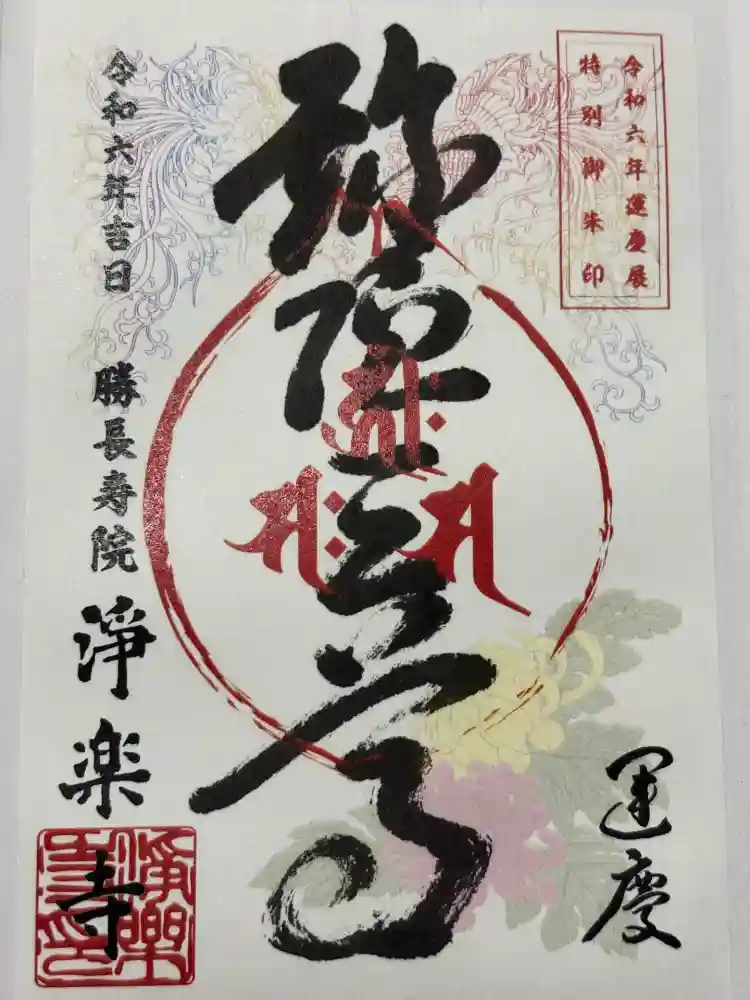 令和六年運慶展
特別御朱印
運慶
弥陀三尊
令和六年吉日
勝長寿院
淨楽寺